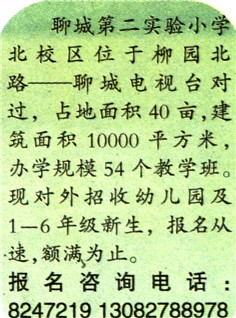 聊城第二实验小学
北校区位于柳园北
路——聊城电视台对
过，占地面积40亩,建
筑面积10000平方米，
办学规模54个教学班。
现对外招收幼儿园及
1—6年级新生，报名从
速,额满为止。
报名咨询电话：
8247219 13082788978